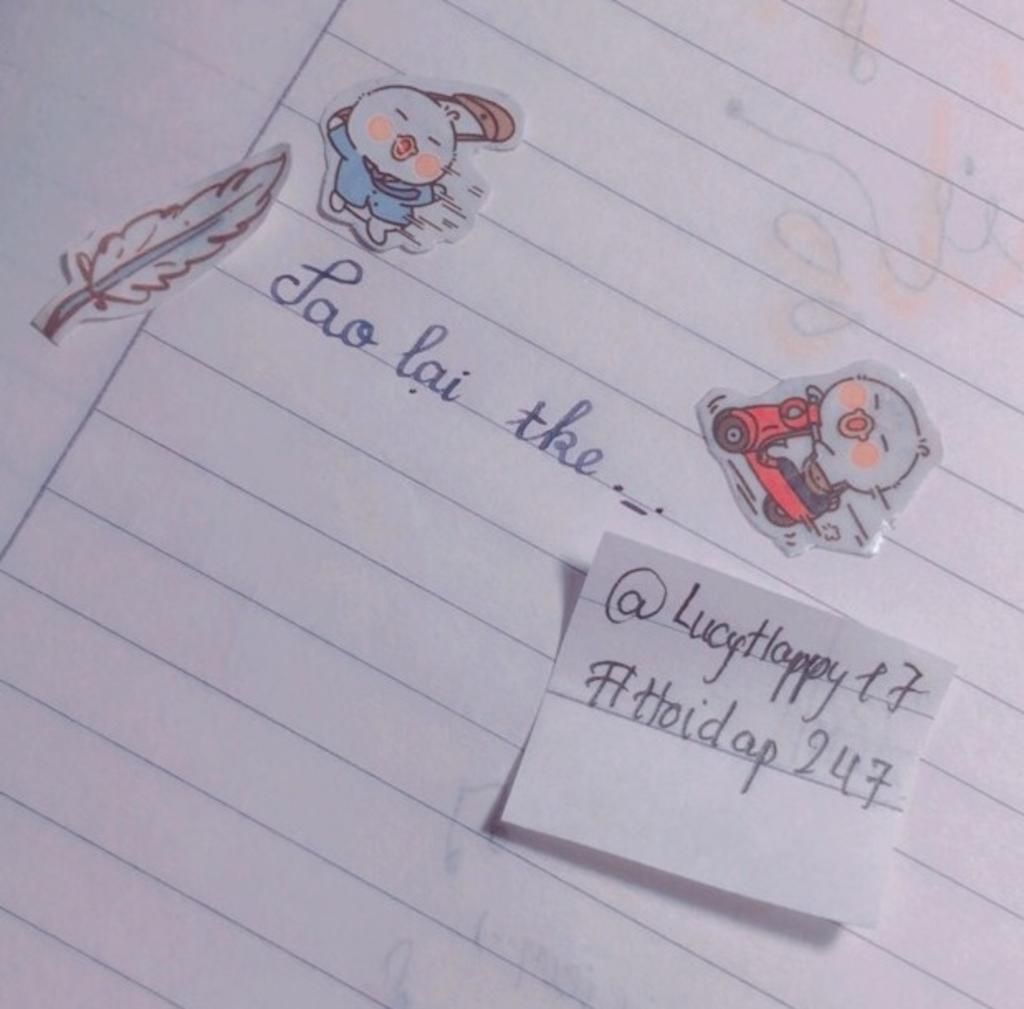 Sao lại the._.
@LucyHappy17
#Hoidap247